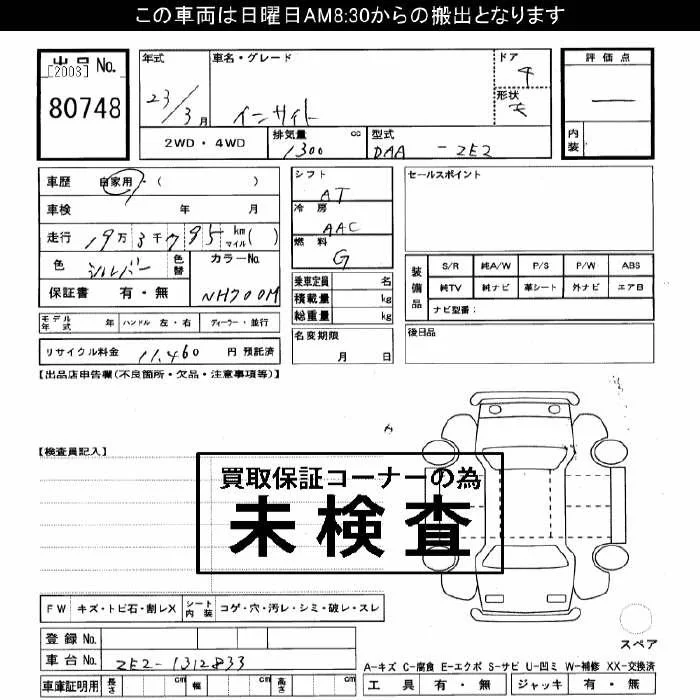 この車両は日曜日AM8:30からの搬出となります
出品 No.
[2003]
80748
年式
23/3月
車名・グレード
インサイト
ドア
4
形状
評価点
—
内装
2WD・4WD
排気量 cc
1300
型式
DAA - ZE2
車歴 自家用・( )
車検 年 月
走行 19万3千795 km マイル( )
色 シルバー 色替
カラーNo.
NH700M
保証書 有・無
シフト
AT
冷房
AAC
燃料
G
乗車定員 名
積載量 kg
総重量 kg
名変期限
月 日
セールスポイント
装備品
S/R 純A/W P/S P/W ABS
純TV 純ナビ 革シート 外ナビ エアB
ナビ型番:
後日品
モデル年式 年 ハンドル 左・右 ディーラー・並行
リサイクル料金 11,460 円 預託済
【出品店申告欄(不良箇所・欠品・注意事項等)】
【検査員記入】
買取保証コーナーの為
未検査
FW キズ・トビ石・割レX シート内装 コゲ・穴・汚レ・シミ・破レ・スレ
登録 No.
車台 No. ZE2-1312833
車庫証明用 長さ cm 幅 cm 高さ cm
スペア
A-キズ C-腐食 E-エクボ S-サビ U-凹ミ W-補修 XX-交換済
工具 有・無 ジャッキ 有・無